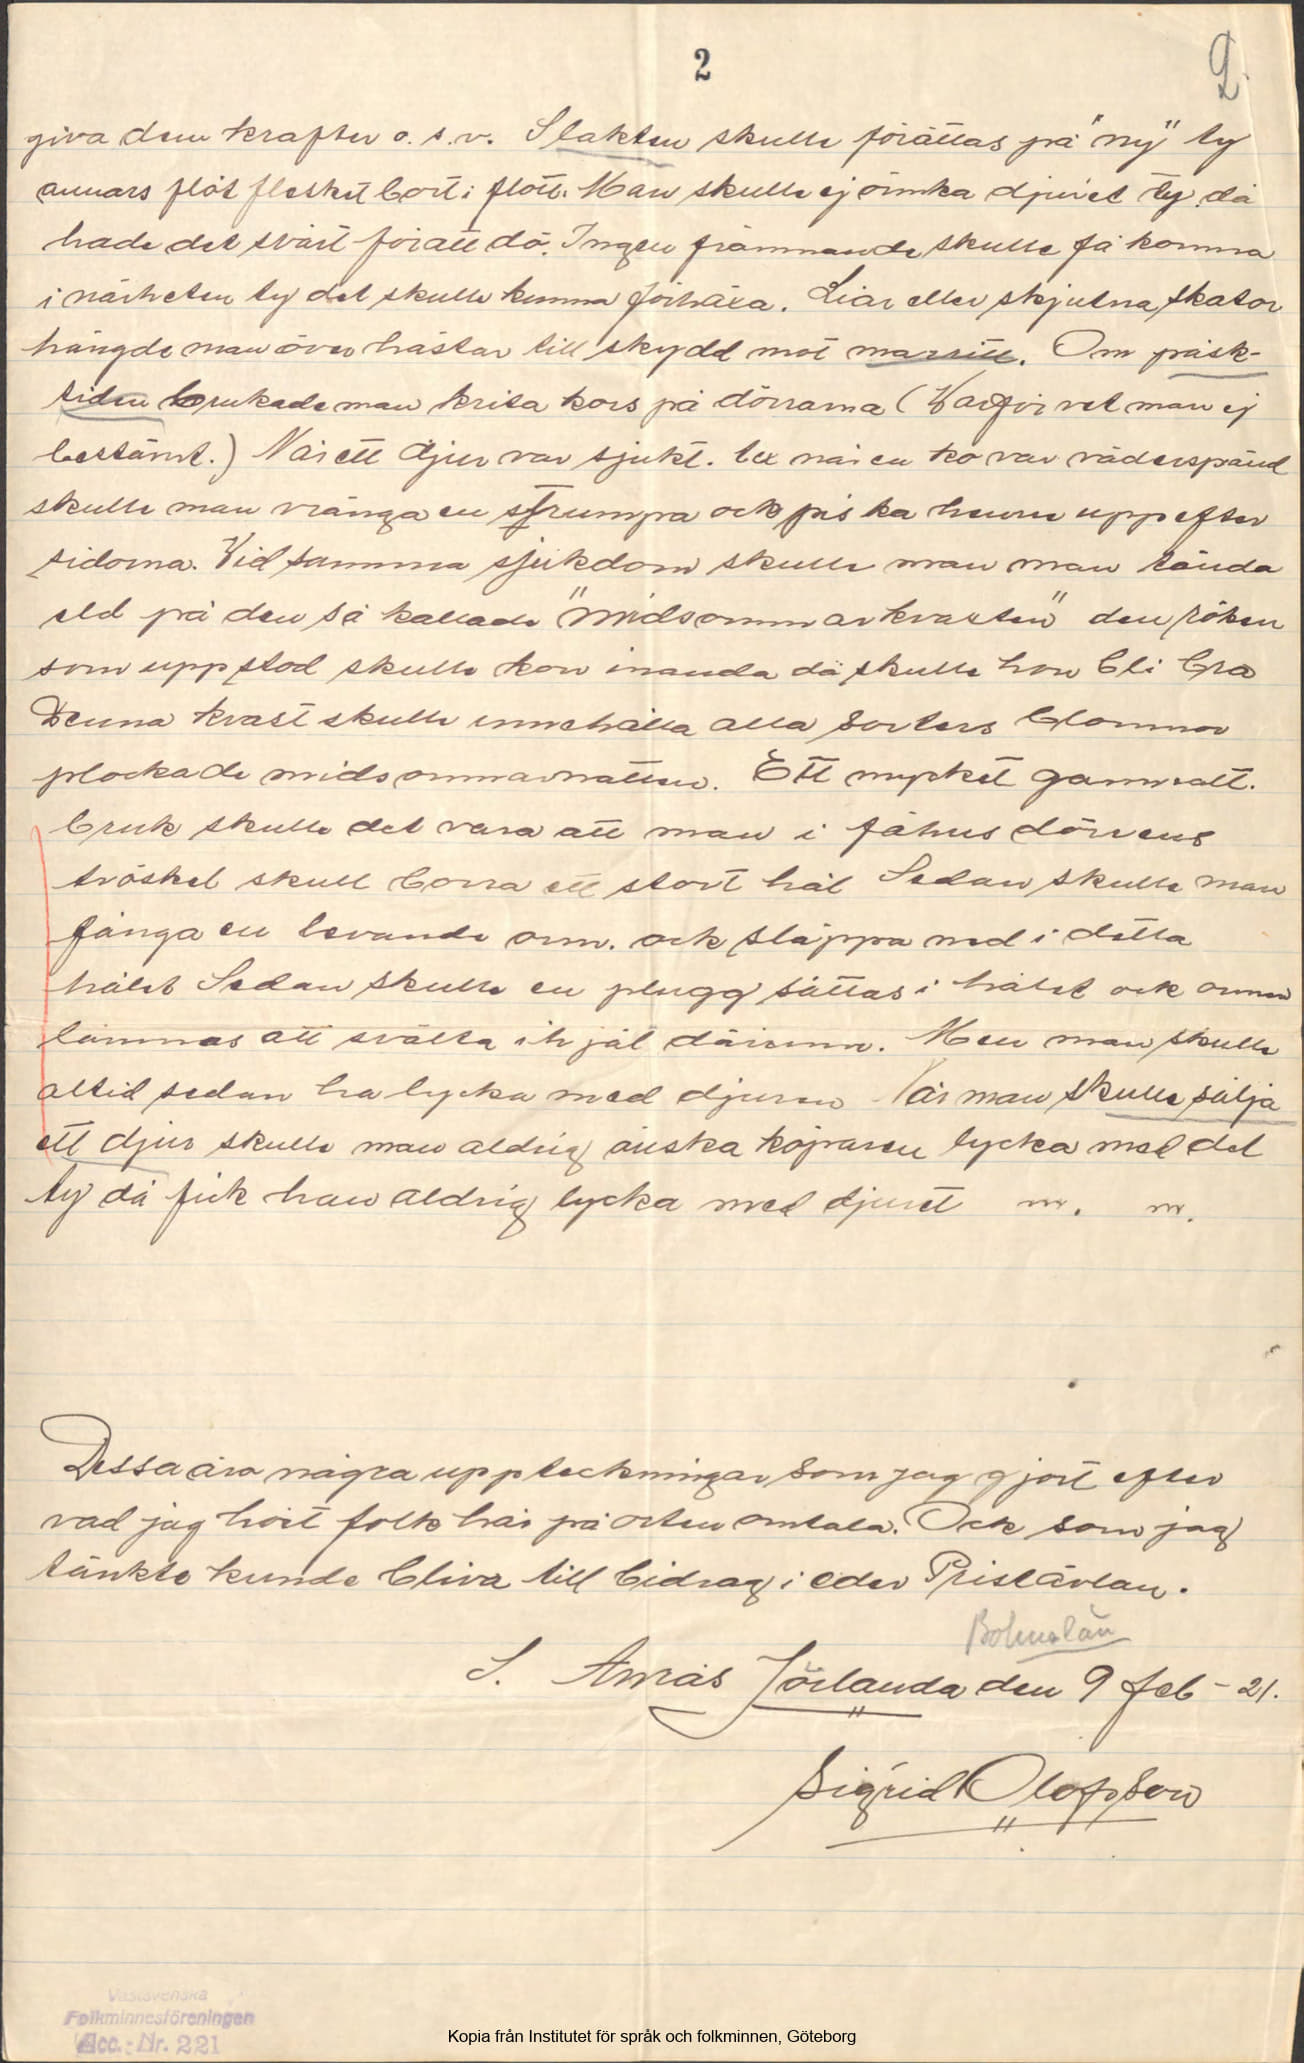 2
2.
giva dem krafter o. s. v. Slakten skulle förättas på "ny" ty
annars flöt flesket bort i flott. Man skulle ej ömka djuret ty då
hade det svårt för att dö. Ingen främmande skulle få komma
i närheten ty det skulle kunna förhäxa. Liar eller skjutna skator
hängde man över hästar till skydd mot marritt. Om påsk-
tiden brukade man krita kors på dörrarna (Varför vet man ej
bestämt.) När ett djur var sjukt. tex när en ko var väderspänd
skulle man vränga en strumpa ock piska henne upp efter
sidorna. Vid samma sjukdom skulle man man tända
eld på den så kallade "midsommarkvasten" den röken
som uppstod skulle kon inanda då skulle hon bli bra
Denna kvast skulle innehålla alla sorters blommor
plockade midsommarnatten. Ett mycket gammalt.
bruk skulle det vara att man i fähusdörrens
tröskel skull borra ett stort hål Sedan skulle man
fånga en levande orm. ock släppa ned i detta
hålet Sedan skulle en plugg sättas i hålet ock ormen
lämnas att svälta ihjäl därinne. Men man skulle
altid sedan ha lycka med djuren När man skulle sälja
ett djur skulle man aldrig önska köparen lycka med det
ty då fick han aldrig lycka med djuret m. m.
Dessa äro några uppteckningar som jag gjort efter
vad jag hört folk här på orten omtala. Ock som jag
tänkte kunde bliva till bidrag i eder Pristävlan.
Bohuslän
S. Amrås Jörlanda den 9 feb - 21.
Sigrid Olofsson
Västsvenska
Folkminnesföreningen
Acc.-Nr. 221
Kopia från Institutet för språk och folkminnen, Göteborg